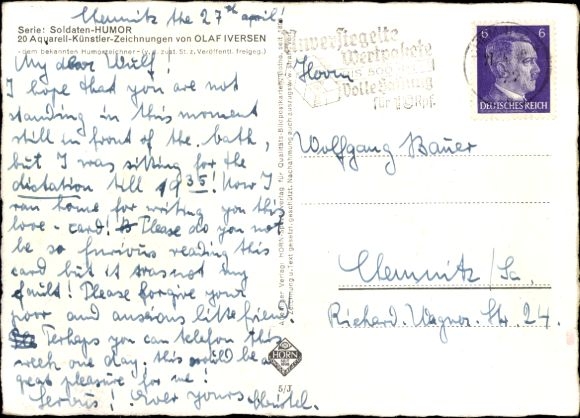 Chemnitz the 27th april!
Serie: Soldaten-HUMOR
20 Aquarell-Künstler-Zeichnungen von OLAF IVERSEN
- dem bekannten Humorzeichner - (v. j. zust. St. z. Veröffentl. freigeg.)
My dear Wulf!
I hope that you are not
standing in this moment
still in front of the bath,
but I was sitting for the
dictation till 1935! Now I
ran home for writing you this
love-card! Please do you not
be so furious reading this
card but it was not my
fault! Please forgive your
poor and anxious little friend
Perhaps you can telefon this
week one day. this would be a
great pleasure for me!
Servus! Ever yours Christel.
HORN
5/J
Unversiegelte
Wertpakete
bis 500
Volle Haftung
für 10 Rpf.
6 6
DEUTSCHES REICH
Herrn
Wolfgang Bauer
Chemnitz/Sa.
Richard-Wagner-Str. 24.